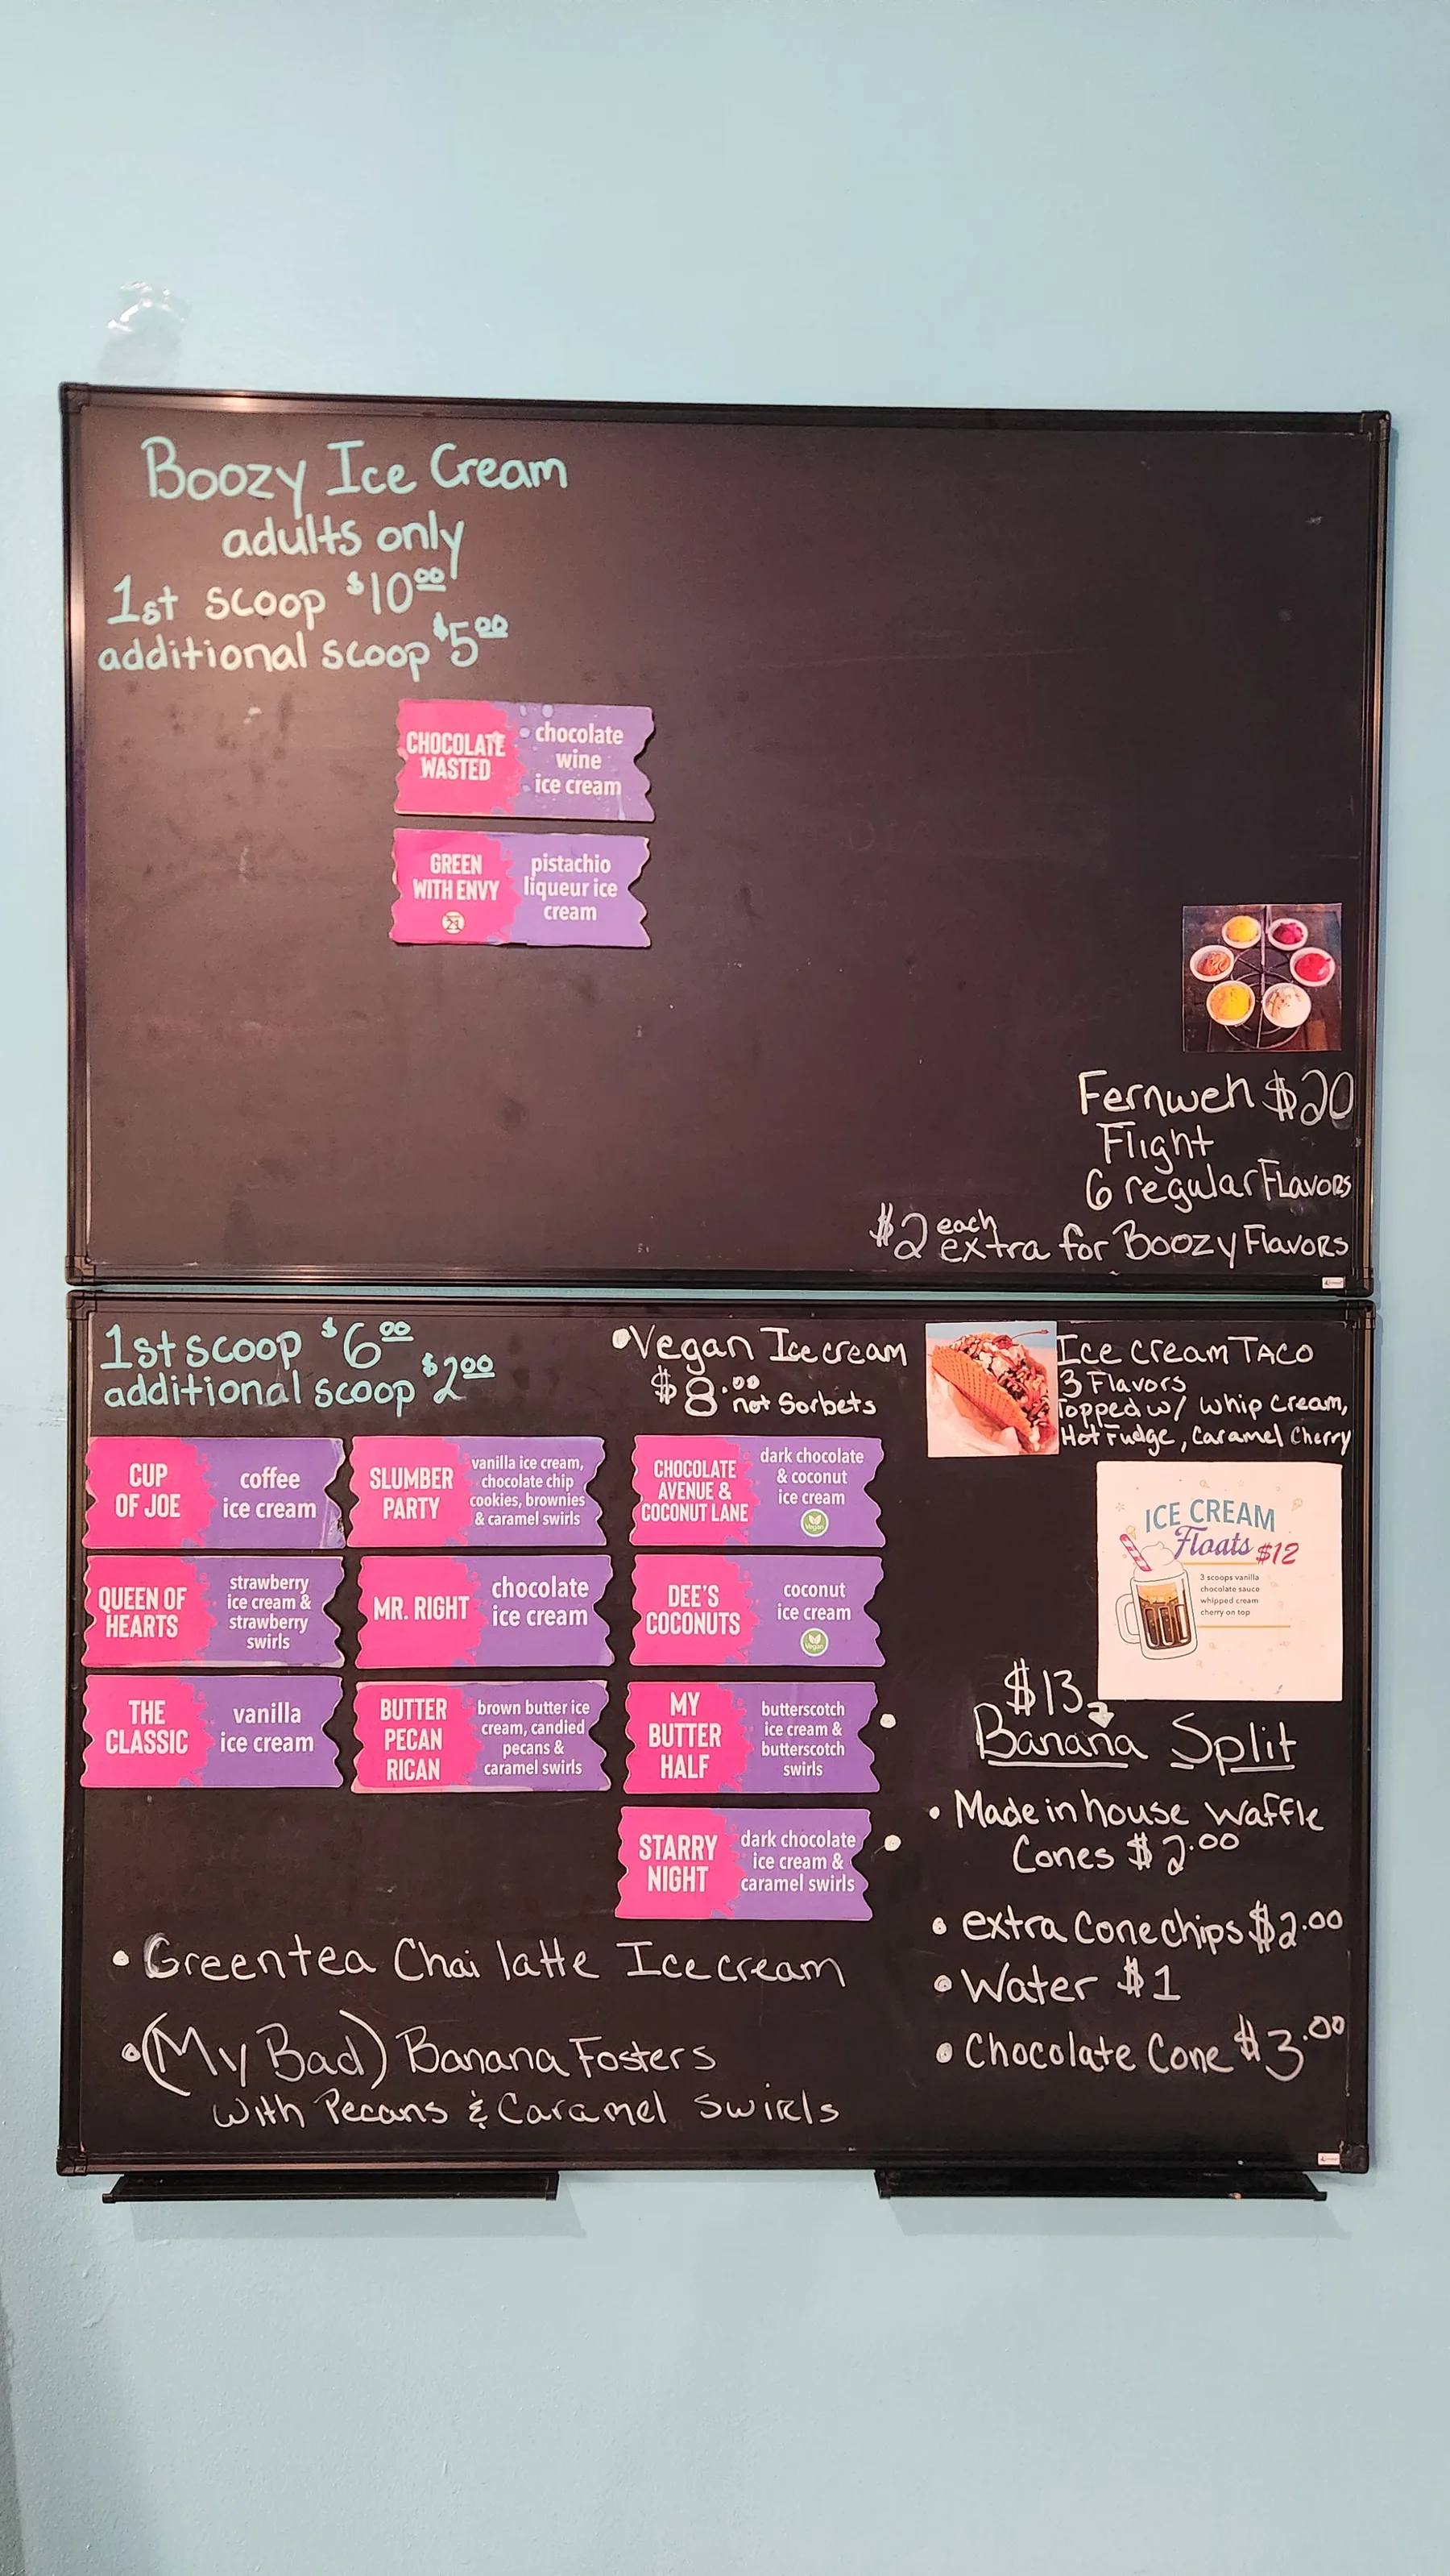 Boozy Ice Cream
adults only
1st scoop $10.00
additional scoop $5.00
CHOCOLATE
WASTED
chocolate
wine
ice cream
GREEN
WITH ENVY
21
pistachio
liqueur ice
cream
Fernweh $20
Flight
6 regular Flavors
$2 each
extra for Boozy Flavors
1st scoop $6.00
additional scoop $2.00
•Vegan Ice cream
$8.00 not Sorbets
Ice Cream TACO
3 Flavors
Topped w/ whip cream,
Hot Fudge, Caramel Cherry
CUP
OF JOE
coffee
ice cream
SLUMBER
PARTY
vanilla ice cream,
chocolate chip
cookies, brownies
& caramel swirls
CHOCOLATE
AVENUE &
COCONUT LANE
dark chocolate
& coconut
ice cream
Vegan
QUEEN OF
HEARTS
strawberry
ice cream &
strawberry
swirls
MR. RIGHT
chocolate
ice cream
DEE'S
COCONUTS
coconut
ice cream
Vegan
THE
CLASSIC
vanilla
ice cream
BUTTER
PECAN
RICAN
brown butter ice
cream, candied
pecans &
caramel swirls
MY
BUTTER
HALF
butterscotch
ice cream &
butterscotch
swirls
STARRY
NIGHT
dark chocolate
ice cream &
caramel swirls
ICE CREAM
Floats $12
3 scoops vanilla
chocolate sauce
whipped cream
cherry on top
$13
Banana Split
• Made in house waffle
Cones $2.00
• extra Cone chips $2.00
• Water $1
• Chocolate Cone $3.00
• Green tea Chai latte Ice cream
•(My Bad) Banana Fosters
with Pecans & Caramel Swirls